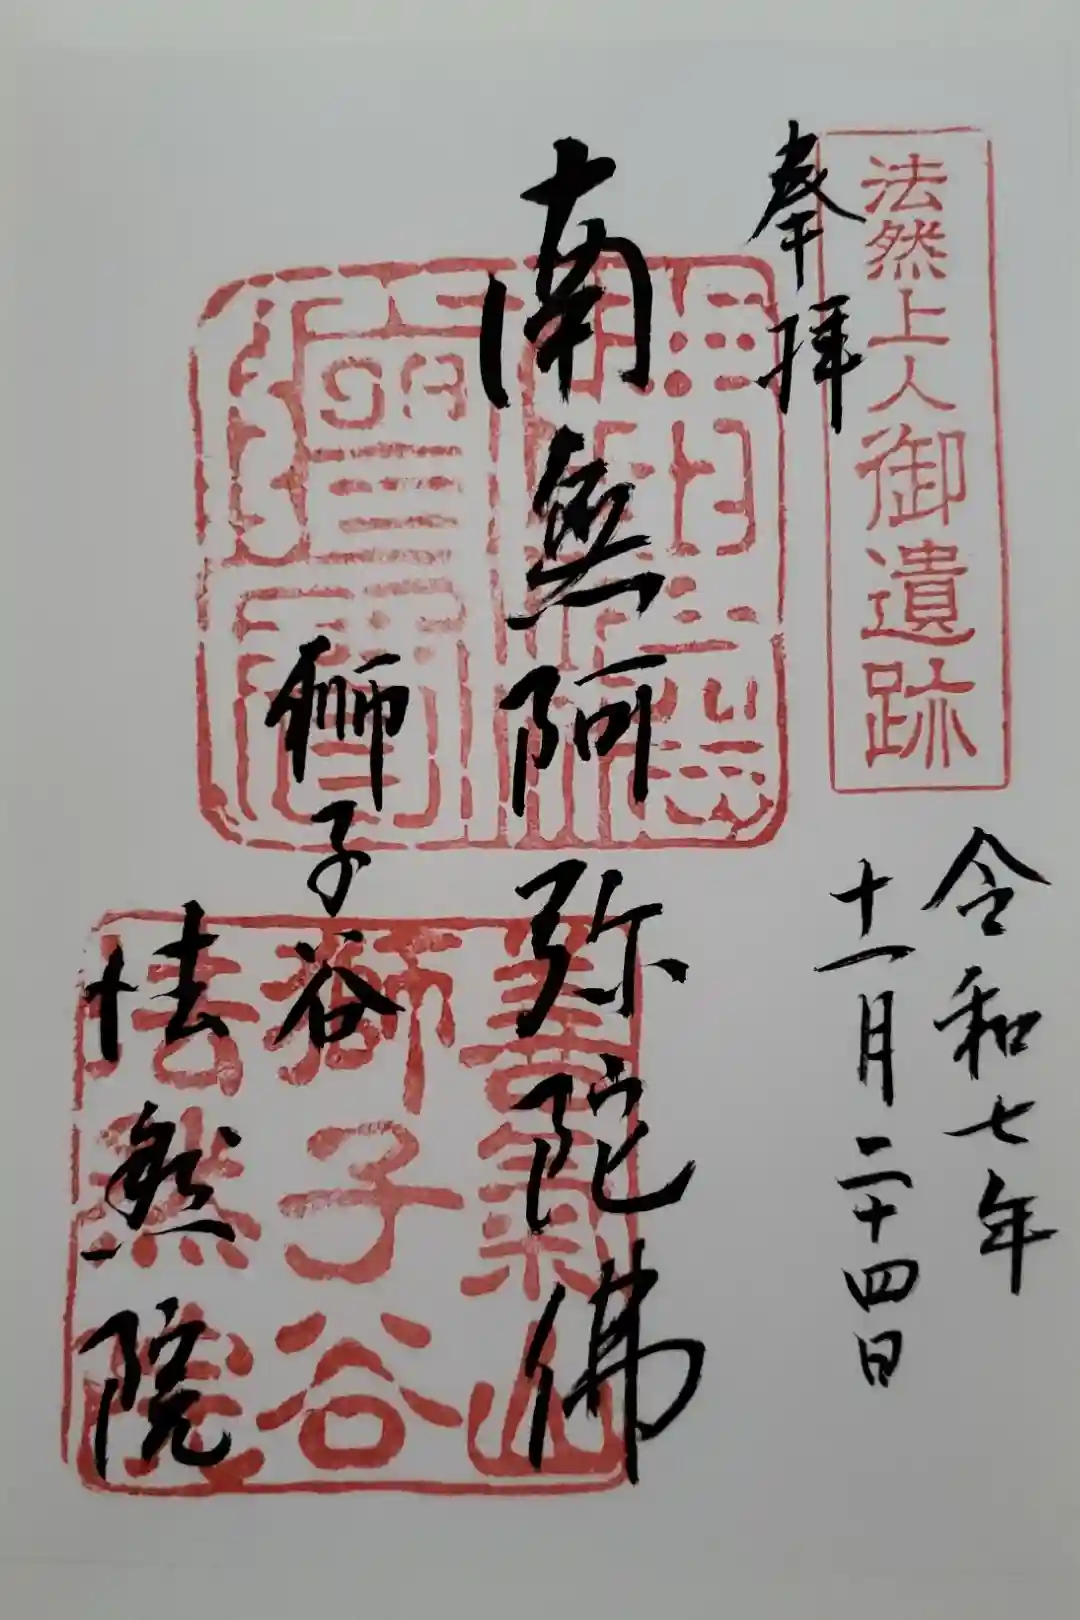 法然上人御遺跡
奉拝
令和七年
十一月二十四日
南無阿弥陀佛
獅子谷
法然院
善氣山
獅子谷
法然院